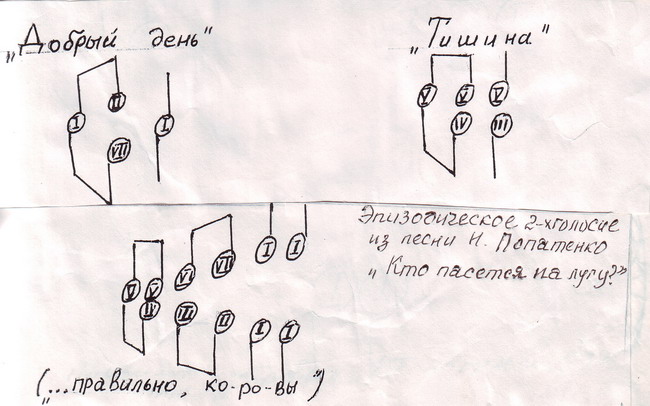 „Добрый день"
II
I I
VII
„Тишина"
V V V
IV III
Эпизодическое 2-хголосие
из песни И. Попатенко
„Кто пасется на лугу?"
V V VI VII I I
IV III II I I
(„...правильно, ко-ро-вы")